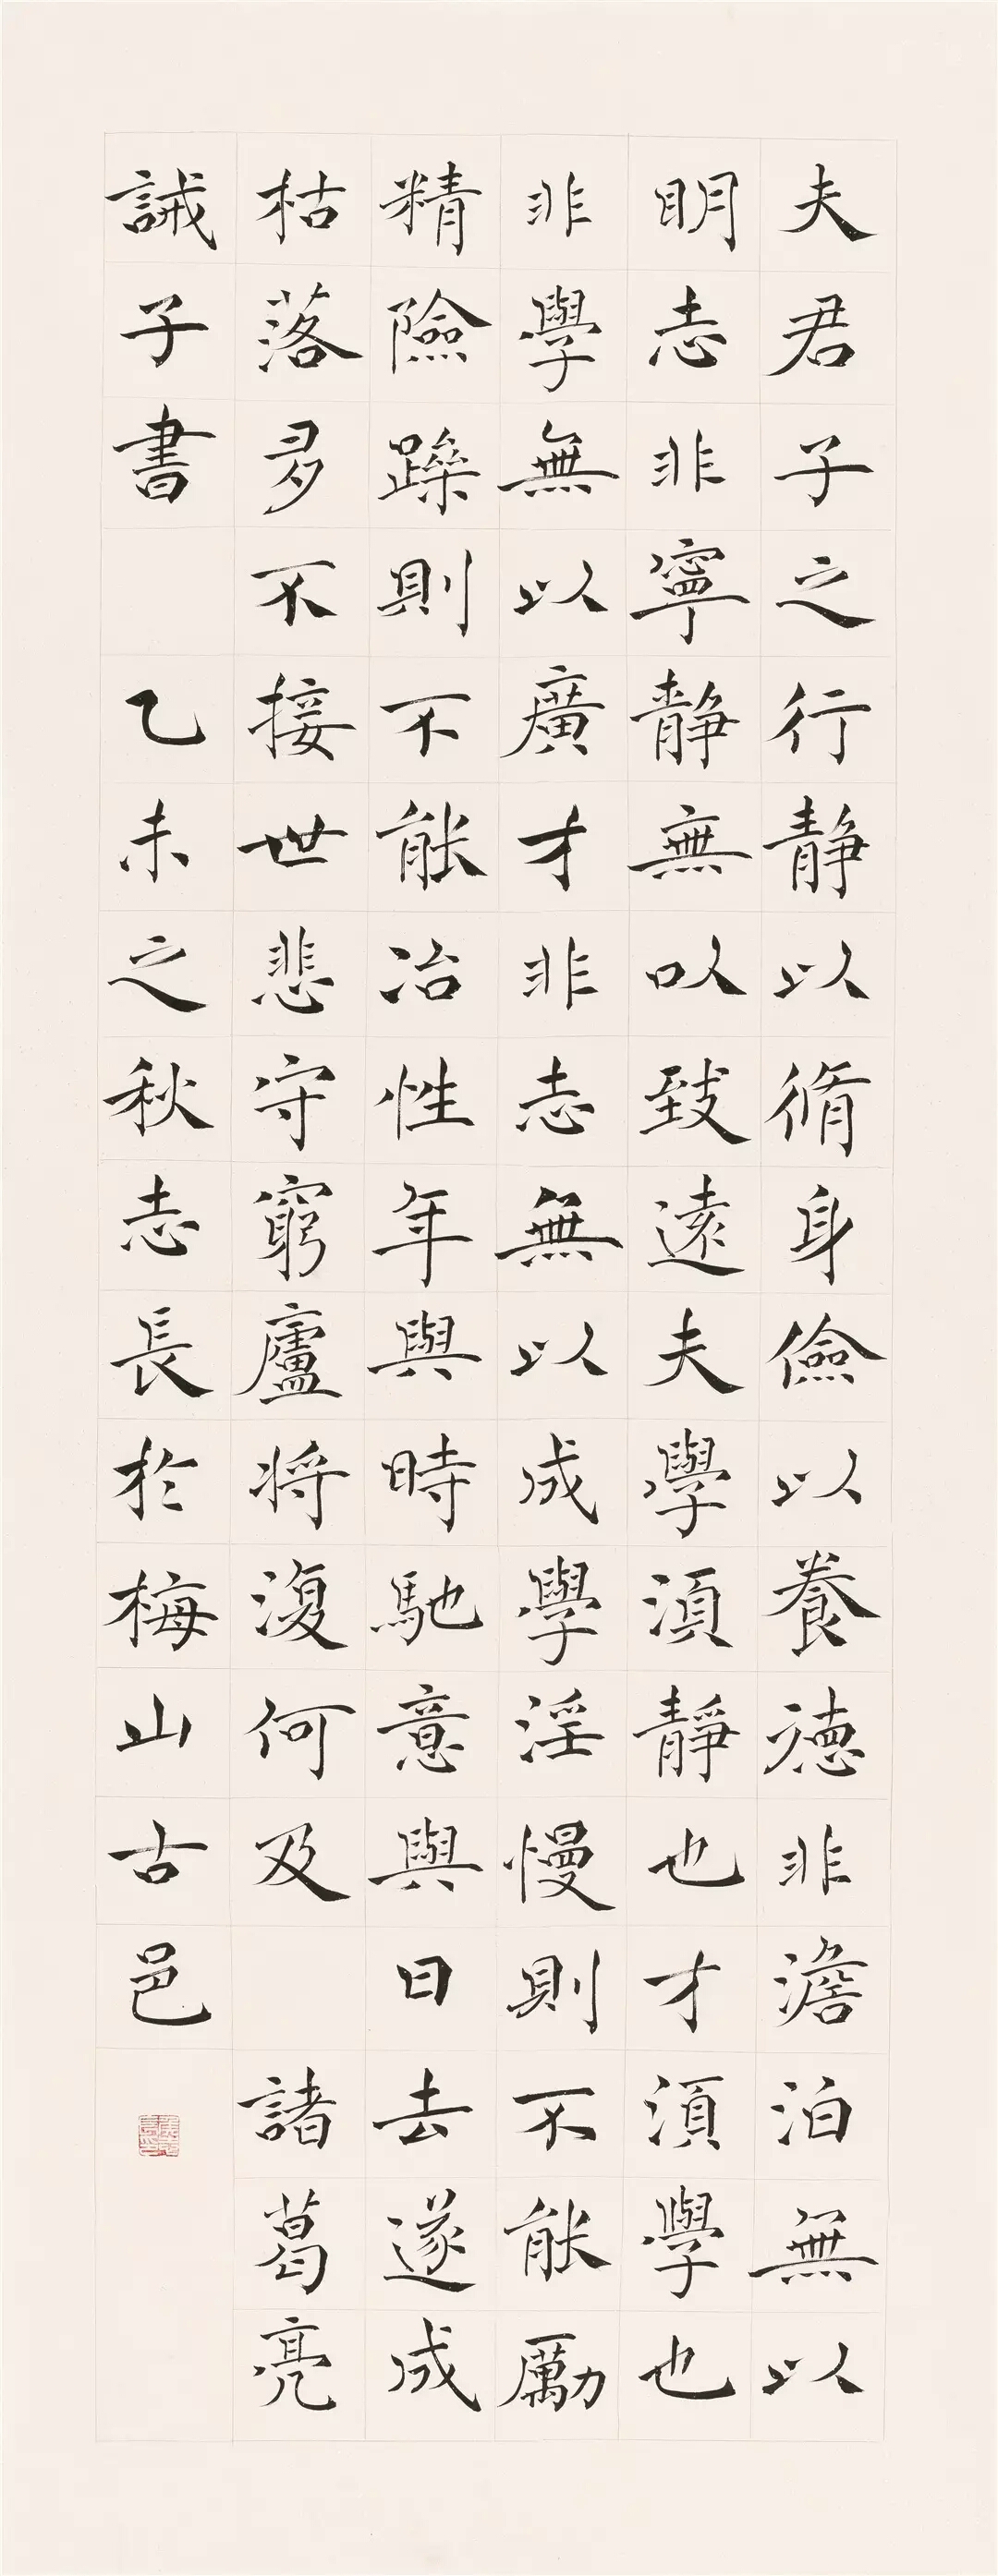 夫君子之行静以脩身儉以養德非澹泊無以
明志非寧静無以致遠夫學須靜也才須學也
非學無以廣才非志無以成學淫慢則不能勵
精險躁則不能冶性年與時馳意與日去遂成
枯落多不接世悲守窮廬將復何及 諸葛亮
誡子書 乙未之秋志長於梅山古邑